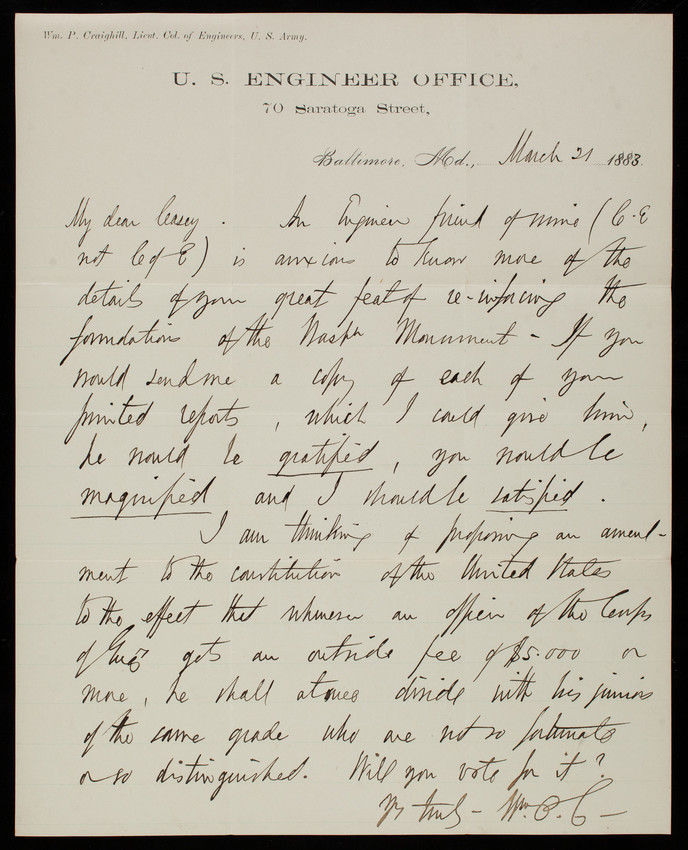 Wm. P. Craighill, Lieut. Col. of Engineers, U. S. Army.
U. S. ENGINEER OFFICE,
70 Saratoga Street,
Baltimore, Md., March 21 1883.
My dear Casey. An Engineer friend of mine (C.E
not C of E) is anxious to know more of the
details of your great feat of re-inforcing the
foundations of the Washn Monument - If you
would send me a copy of each of your
printed reports, which I could give him,
he would be gratified, you would be
magnified and I should be satisfied.
I am thinking of proposing an amend-
ment to the constitution of the United States
to the effect that whenever an officer of the Corps
of Engrs gets an outside fee of $5.000 or
more, he shall at once divide with his juniors
of the same grade who are not so fortunate
or so distinguished. Will you vote for it?
Yrs truly - Wm. P. C -